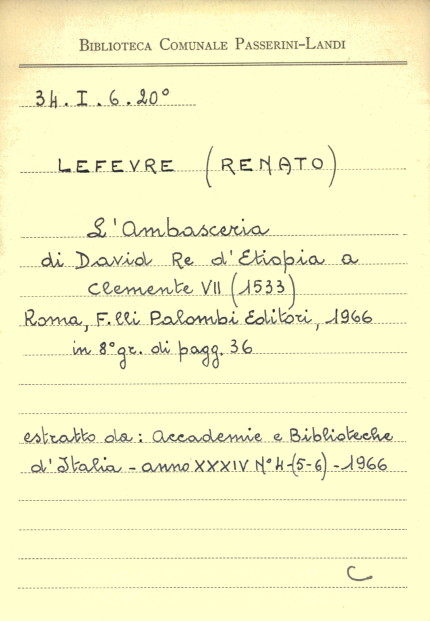 BIBLIOTECA COMUNALE PASSERINI-LANDI
34. I. 6. 20°
LEFEVRE (RENATO)
L'Ambasceria
di David Re d'Etiopia a
Clemente VII (1533)
Roma, F.lli Palombi Editori, 1966
in 8° gr. di pagg. 36
estratto da: Accademie e Biblioteche
d'Italia - anno XXXIV N° 4-(5-6) - 1966
C